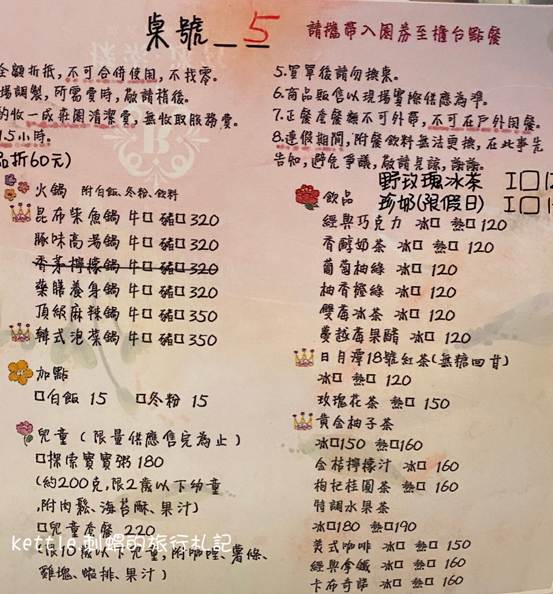 桌號__5
請攜帶入園券至櫃台點餐
全額折抵，不可合併使用，不找零。
場調製，所需費時，敬請稍後。
酌收一成莊園清潔費，無收取服務費。
1.5小時。
品折60元)
5.買單後請勿換桌。
6.商品販售以現場實際供應為準。
7.正餐產餐類不可外帶，不可在戶外用餐。
8.連假期間，附餐飲料無法更換，在此事先
告知，避免爭議，敬請見諒，謝謝。
火鍋 附白飯、冬粉、飲料
昆布柴魚鍋 牛□ 豬□ 320
豚味高湯鍋 牛□ 豬□ 320
香茅檸檬鍋 牛□ 豬□ 320
藥膳養身鍋 牛□ 豬□ 320
頂級麻辣鍋 牛□ 豬□ 350
韓式泡菜鍋 牛□ 豬□ 350
加點
□白飯 15 □冬粉 15
兒童（限量供應售完為止）
□探索寶寶粥 180
(約200克，限2歲以下幼童
，附肉鬆、海苔酥、果汁)
□兒童套餐 220
(限10歲以下兒童，附咖哩、薯條、
雞塊、蝦排、果汁)
野玫瑰冰茶 I□
珍奶(限假日) I□
飲品
經典巧克力 冰□ 熱□ 120
香醇奶茶 冰□ 熱□ 120
葡萄柚綠 冰□ 120
柚香橙綠 冰□ 120
雙莓冰茶 冰□ 120
蔓越莓果醋 冰□ 120
日月潭18號紅茶(無糖回甘)
冰□ 熱□ 120
玫瑰花茶 熱□ 150
黃金柚子茶
冰□150 熱□160
金桔檸檬汁 冰□ 160
枸杞桂圓茶 熱□ 160
特調水果茶
冰□180 熱□190
美式咖啡 冰□ 熱□ 150
經典拿鐵 冰□ 熱□ 160
卡布奇諾 冰□ 熱□ 160
kettle刺蝟的旅行札記